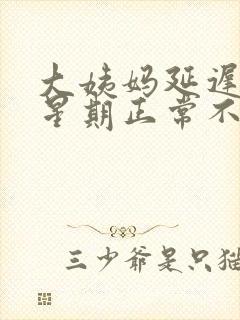 大姨妈延迟
星期正常不
三少爷是只猫